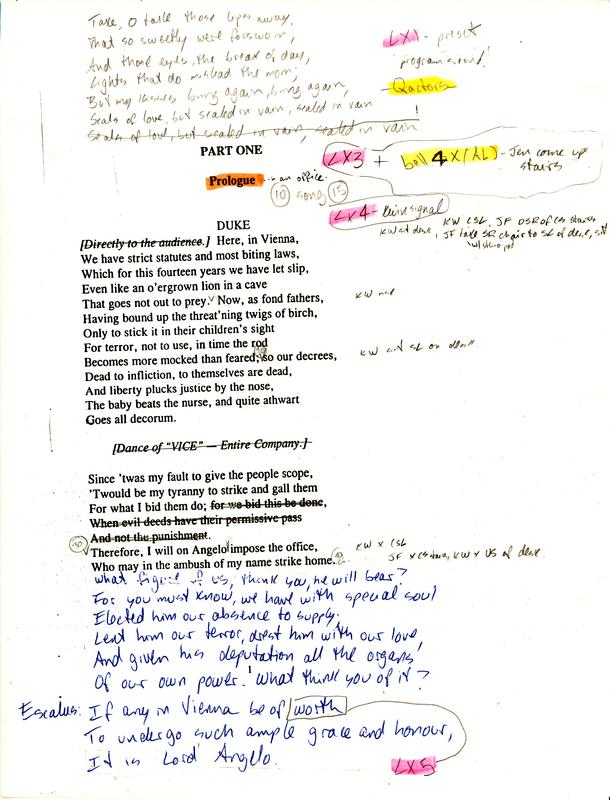 Take, O take those lips away,
That so sweetly were forsworn,
And those eyes, the break of day,
Lights that do mislead the morn;
But my kisses bring again, bring again,
Seals of love, but sealed in vain, sealed in vain
Seals of love, but sealed in vain, sealed in vain.
LX1 - preset
'program sound'
Qactors
PART ONE
LX3 + bell 4X (LL) - Jen come up stairs
Prologue an office.
10 song 15
LX4 -
DUKE
[Directly to the audience.] Here, in Vienna,
We have strict statutes and most biting laws,
Which for this fourteen years we have let slip,
Even like an o'ergrown lion in a cave
That goes not out to prey. Now, as fond fathers,
Having bound up the threat'ning twigs of birch,
Only to stick it in their children's sight
For terror, not to use, in time the rod
Becomes more mocked than feared; so our decrees,
Dead to infliction, to themselves are dead,
And liberty plucks justice by the nose,
The baby beats the nurse, and quite athwart
Goes all decorum.
[Dance of "VICE" — Entire Company.]
Since 'twas my fault to give the people scope,
'Twould be my tyranny to strike and gall them
For what I bid them do; for we bid this be done,
When evil deeds have their permissive pass
And not the punishment.
Therefore, I will on Angelo impose the office,
Who may in the ambush of my name strike home.
KW X CSL
what figure of us, think you, he will bear?
For you must know, we have with special soul
Elected him our absence to supply.
Lent him our terror, drest him with our love,
And given his deputation all the organs
Of our own power. What think you of it?
1
Escalus: If any in Vienna be of worth
To undergo such ample grace and honour,
It is Lord Angelo.
LX5